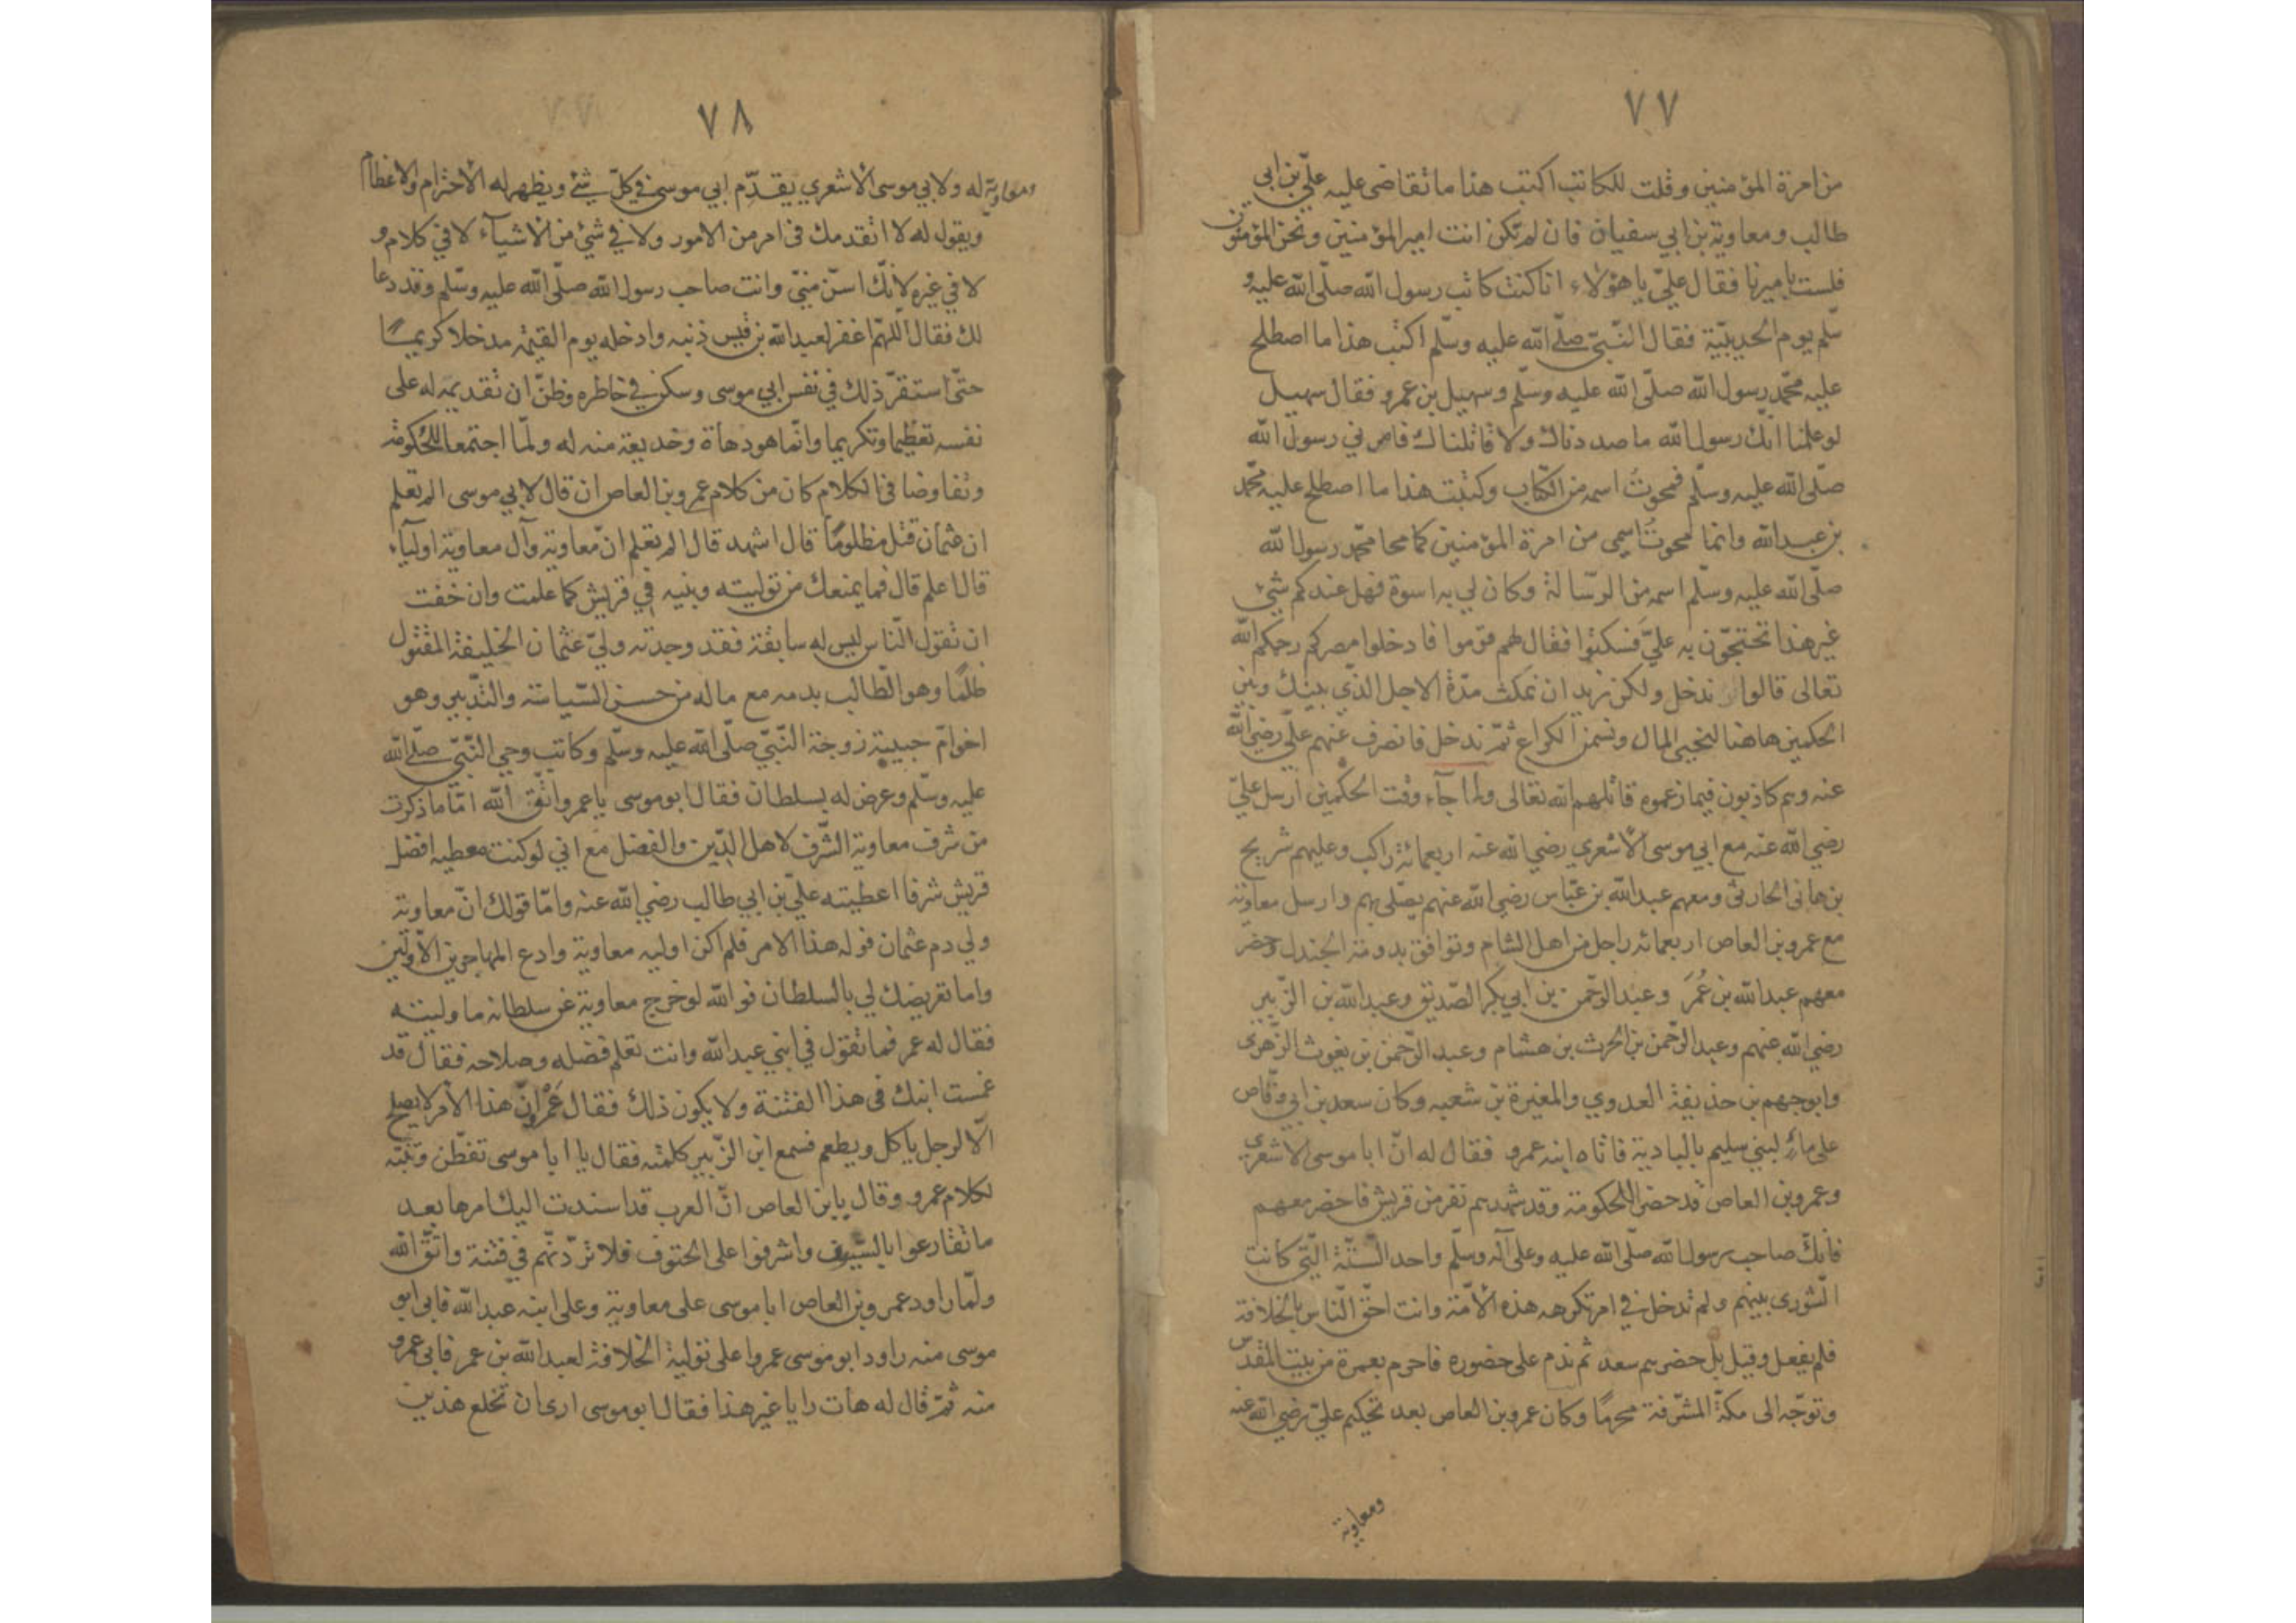 ٧٧
من امرة المؤمنين وقلت للكاتب اكتب هذا ما تقاضى عليه عليّ بن ابى
طالب ومعاوية بن ابي سفيان فان لم تكن انت امير المؤمنين ونحن المؤمنون
فلست باميرنا فقال عليّ يا هؤلاء انا كنت كاتب رسول الله صلّى الله عليه و
سّلم يوم الحديبيّة فقال النّبيّ صلّى الله عليه وسلّم اكتب هذا ما اصطلح
عليه محمّد رسول الله صلّى الله عليه وسلّم وسهيل بن عمرو فقال سهيل
لو علمنا انّك رسول الله ما صددناك ولا قاتلناك فامرني رسول الله
صلّى الله عليه وسلّم فمحوتُ اسمه من الكتاب وكتبت هذا ما اصطلح عليه محمّد
بن عبد الله وانما محوتُ اسمي من امرة المؤمنين كما محا محمّد رسول الله
صلّى الله عليه وسلّم اسمه من الرسّالة وكان لي به اسوة فهل عندكم شيئ
غير هذا تحتجّون به عليّ فسكتوا فقال لهم قوموا فادخلوا مصركم رحمكم الله
تعالى قالوا ندخل ولكن نريد ان نمكث مدّة الاجل الذّي بينك وبين
الحكمين هاهنا لنجبي المال ونسمن الكراع ثمّ ندخل فانصرف عنهم عليّ رضي الله
عنه وهم كاذبون فيما زعموه قاتلهم الله تعالى ولما جآء وقت الحكمين ارسل عليّ
رضي الله عنه مع ابي موسى الأشعري رضي الله عنه اربعمائة راكب وعليهم شريح
بن هانى الحارثى ومعهم عبد الله بن عبّاس رضي الله عنهم يصّلى بهم وارسل معاوية
مع عمرو بن العاص اربعمائه راجل من اهل الشام وتوافق بدومة الجندل وحضر
معهم عبد الله بن عُمَرَ وعبد الرحّمن بن ابي بكر الصّديق وعبد الله بن الزّبير
رضي الله عنهم وعبد الرحّمن بن الحرث بن هشام وعبد الرحّمن بن يغوث الزّهرى
وابو جهم بن حذيفة العدوي والمغيرة بن شعبه وكان سعد بن ابي وقّاص
على مآء لبني سليم بالبادية فاتاه ابنه عمرو فقال له انّ ابا موسى الاشعري
وعمرو بن العاص قد حضرا للحكومة وقد شهدهم نفر من قريش فاحضر معهم
فانّك صاحب رسول الله صلّى الله عليه وعلى آله وسلّم واحد السّتّة الّتي كانت
الشّورى بينهم ولم تدخل في امر تكرهه هذه الأمّة وانت احقّ النّاس بالخلافة
فلم يفعل وقيل بل حضرهم سعد ثم ندم على حضوره فاحرم بعمرة من بيت المقدّس
وتوجّه الى مكّة المشرّفة محرمًا وكان عمرو بن العاص بعد تحكيم عليّ رضي الله عنه
ومعاوية
٧٨
ومعاوية له ولابي موسى الأشعري يقدّم ابي موسى في كلّ شئ ويظهر له الأحترام والاعظام
ويقول له لا اتقدمك فى امر من الامور ولا في شئ من الاشيآء لا في كلام و
لا في غيره لانّك اسنّ منيّ وانت صاحب رسول الله صلّى الله عليه وسّلم وقد دعا
لك فقال اللّهمّ اغفر لعبد الله بن قيس ذنبه وادخله يوم القيمة مدخلا كريمًا
حتّى استقرّ ذلك في نفس ابي موسى وسكن في خاطره وظنّ ان تقديمه له على
نفسه تعظيما وتكريما وانّما هو دهاة وخديعة منه له ولمّا اجتمعا للحكومة
وتفاوضا فى الكلام كان من كلام عمرو بن العاص ان قال لابي موسى الم تعلم
ان عثمان قتل مظلومًا قال اشهد قال الم تعلم انّ معاوية وآل معاوية اوليآءه
قال اعلم قال فما يمنعك من توليته وبنيه في قريش كما علمت وان خفت
ان تقول النّاس ليس له سابقة فقد وجدته وليّ عثمان الخليفة المقتول
ظلمًا وهو الطّالب بدمه مع ماله من حسن السّياسة والتّدبير وهو
اخو امّ حبيبة زوجة النّبيّ صلّى الله عليه وسلّم وكاتب وحي النّبيّ صلّى الله
عليه وسلّم وعرض له بسلطان فقال ابو موسى يا عمرو اتّق الله امّا ما ذكرت
من شرف معاوية الشّرف لاهل الدّين والفضل مع اني لو كنت معطيه افضل
قريش شرفا اعطيته عليّ بن ابي طالب رضي الله عنه وامّا قولك انّ معاوية
ولي دم عثمان فوله هذا الامر فلم اكن اوليه معاوية وادع المهاجرين الأوّلين
واما تعريضك لي بالسلطان فوالله لو خرج معاوية عن سلطانه ما وليته
فقال له عمر فما تقول في ابني عبد الله وانت تعلم فضله وصلاحه فقال قد
غمست ابنك فى هذا الفتنة ولا يكون ذلك فقال عَمْرو انّ هذا الأمر لا يصلح
الّا لرجل ياكل ويطعم فسمع ابن الزّبير كلمته فقال يا ابا موسى تفطّن وتنبّه
لكلام عمرو وقال يابن العاص انّ العرب قد اسندت اليك امرها بعد
ما تقارعوا بالسّيوف واشرفوا على الحتوف فلا تردّنّهم في فتنة واتّق الله
ولمّا راود عمرو بن العاص ابا موسى على معاوية وعلى ابنه عبد الله فابى ابو
موسى منه راود ابو موسى عمروا على تولية الخلافة لعبد الله بن عمر فابى عمرو
منه ثمّ قال له هات رايا غير هذا فقال ابو موسى ارى ان نخلع هذين